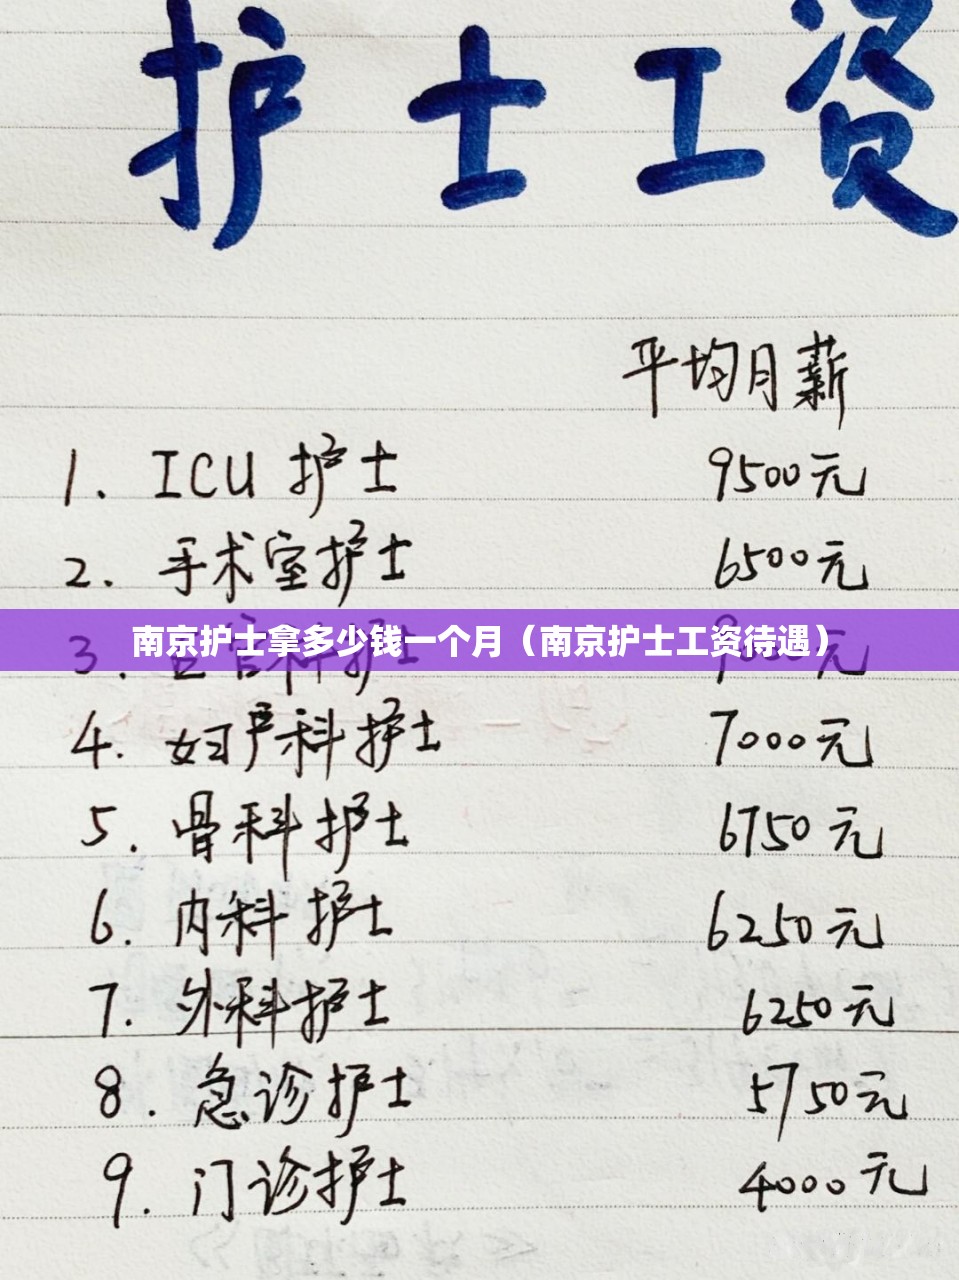 护士工资
平均月薪
1. ICU 护士 9500元
2. 手术室护士 6500元
南京护士拿多少钱一个月（南京护士工资待遇）
3. 官科护士 元
4. 妇产科护士 7000元
5. 骨科护士 6750元
6. 内科护士 6250元
7. 外科护士 6250元
8. 急诊护士 5750元
9. 门诊护士 4000元